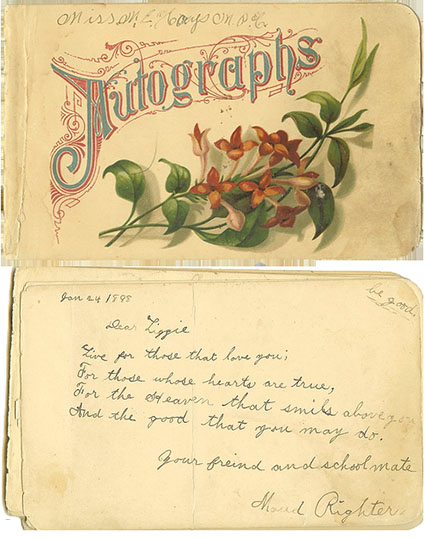 Miss M. E. Hays
Autographs
Jan 24 1898
be good
Dear Lizzie
Live for those that love you;
For those whose hearts are true,
For the Heaven that smils above you
And the good that you may do.
Your freind and schoolmate
Maud Righter